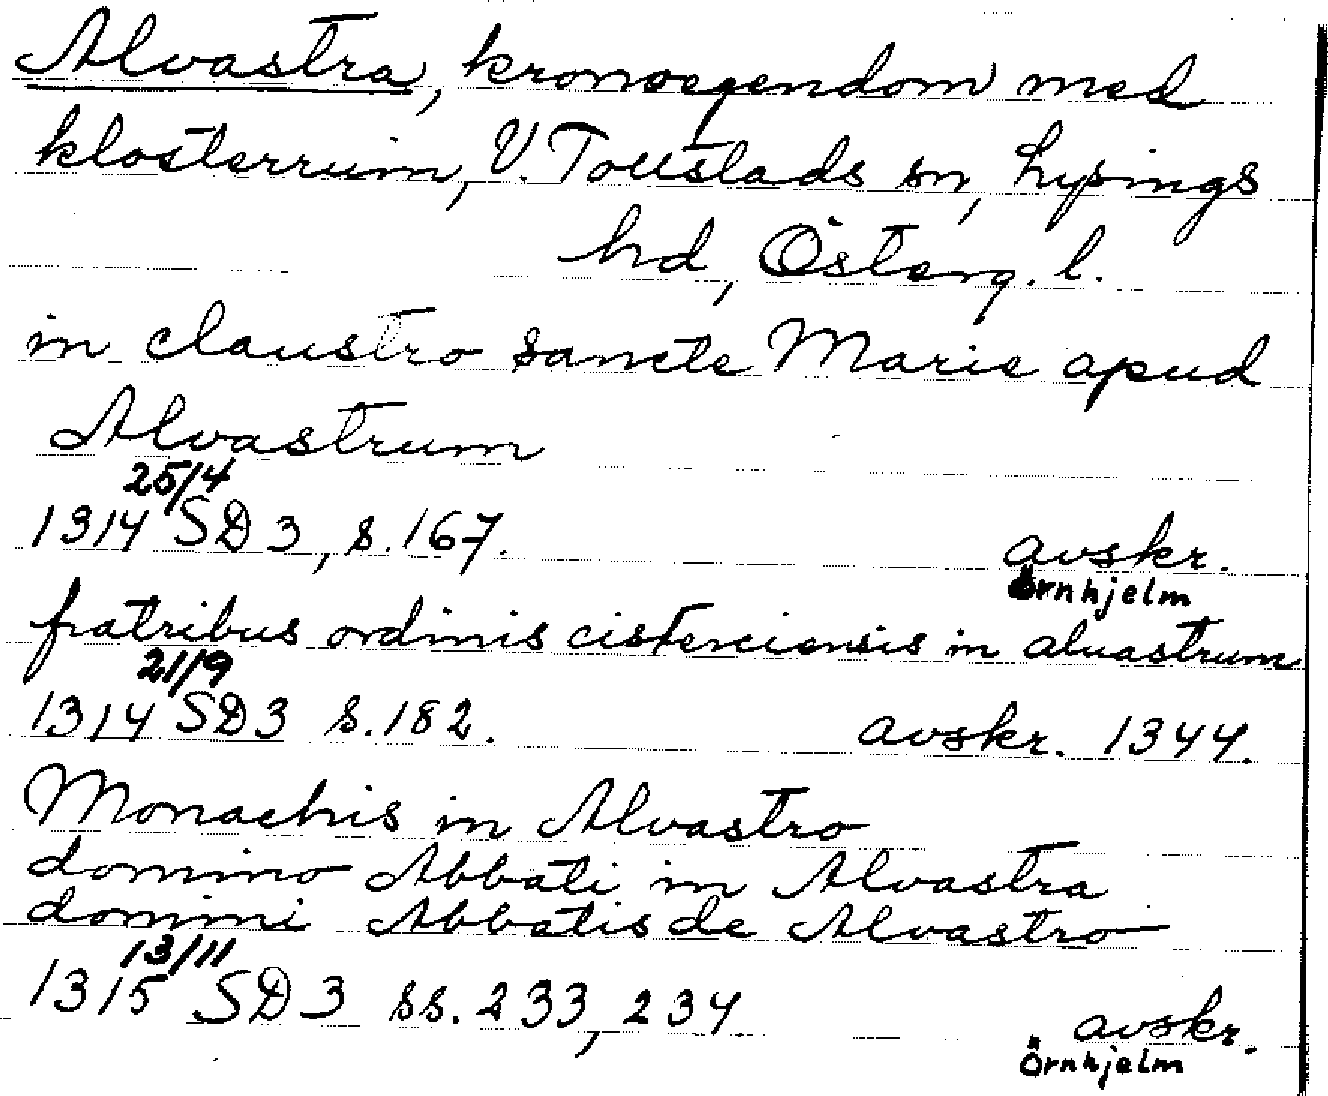 Alvastra, kronoegendom med
klosterruin, V. Tollstads sn, Lysings
hd, Österg. l.
in claustro sancte Marie apud
Alvastrum
25/4
1314 SD 3, s. 167. avskr.
Örnhjelm
fratribus ordinis cisterciensis in aluastrum
21/9
1314 SD 3 s. 182. avskr. 1344.
Monachis in Alvastro
domino Abbati in Alvastra
domini Abbatis de Alvastro
13/11
1315 SD 3 ss. 233, 234 avskr.
Örnhjelm